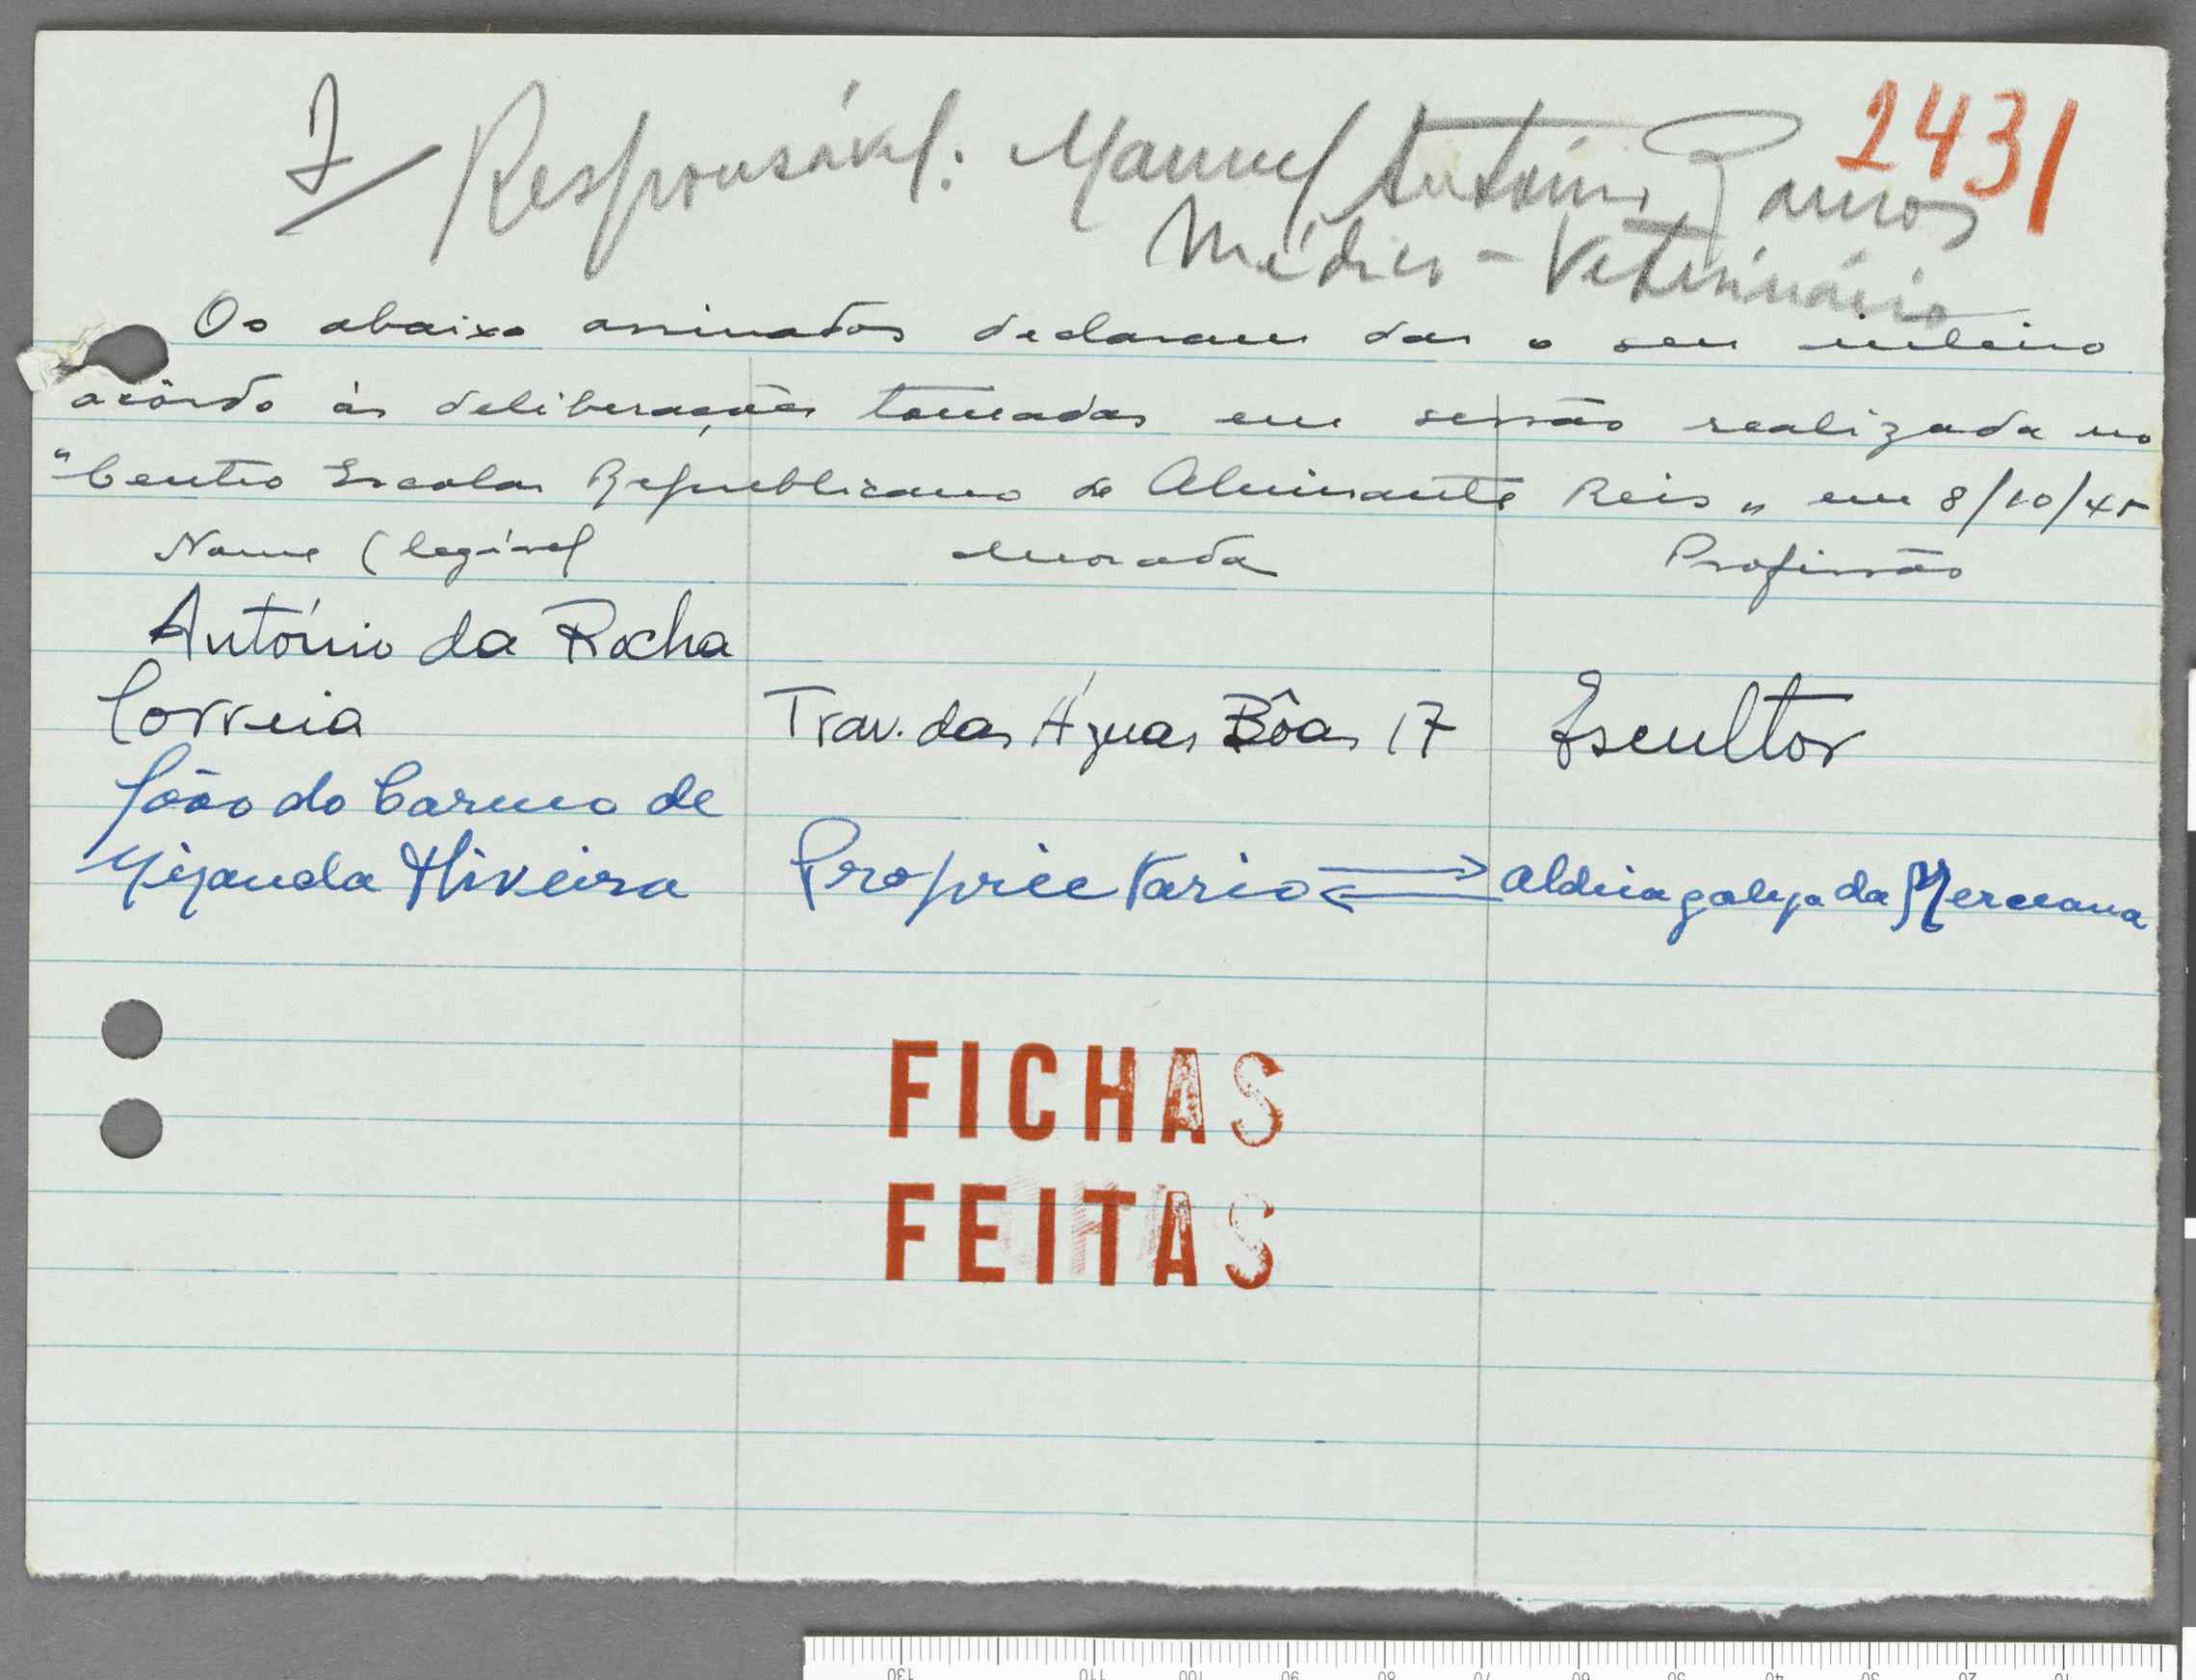 2431
Responsável: Manuel António Ramos
Médico-Veterinário
Os abaixo assinados declaram dar o seu inteiro
acôrdo ás deliberações tomadas em sessão realizada no
"Centro Escolar Republicano de Almirante Reis" em 8/10/45
Nome (legível Morada Profissão
António da Rocha
Correia Trav. das Águas Bôas 17 Escultor
João do Carmo de
Miranda Oliveira Proprietario Aldeia galega da Merceana
FICHAS
FEITAS
130 110 100 90 80 70 60 50 40 30 20 10